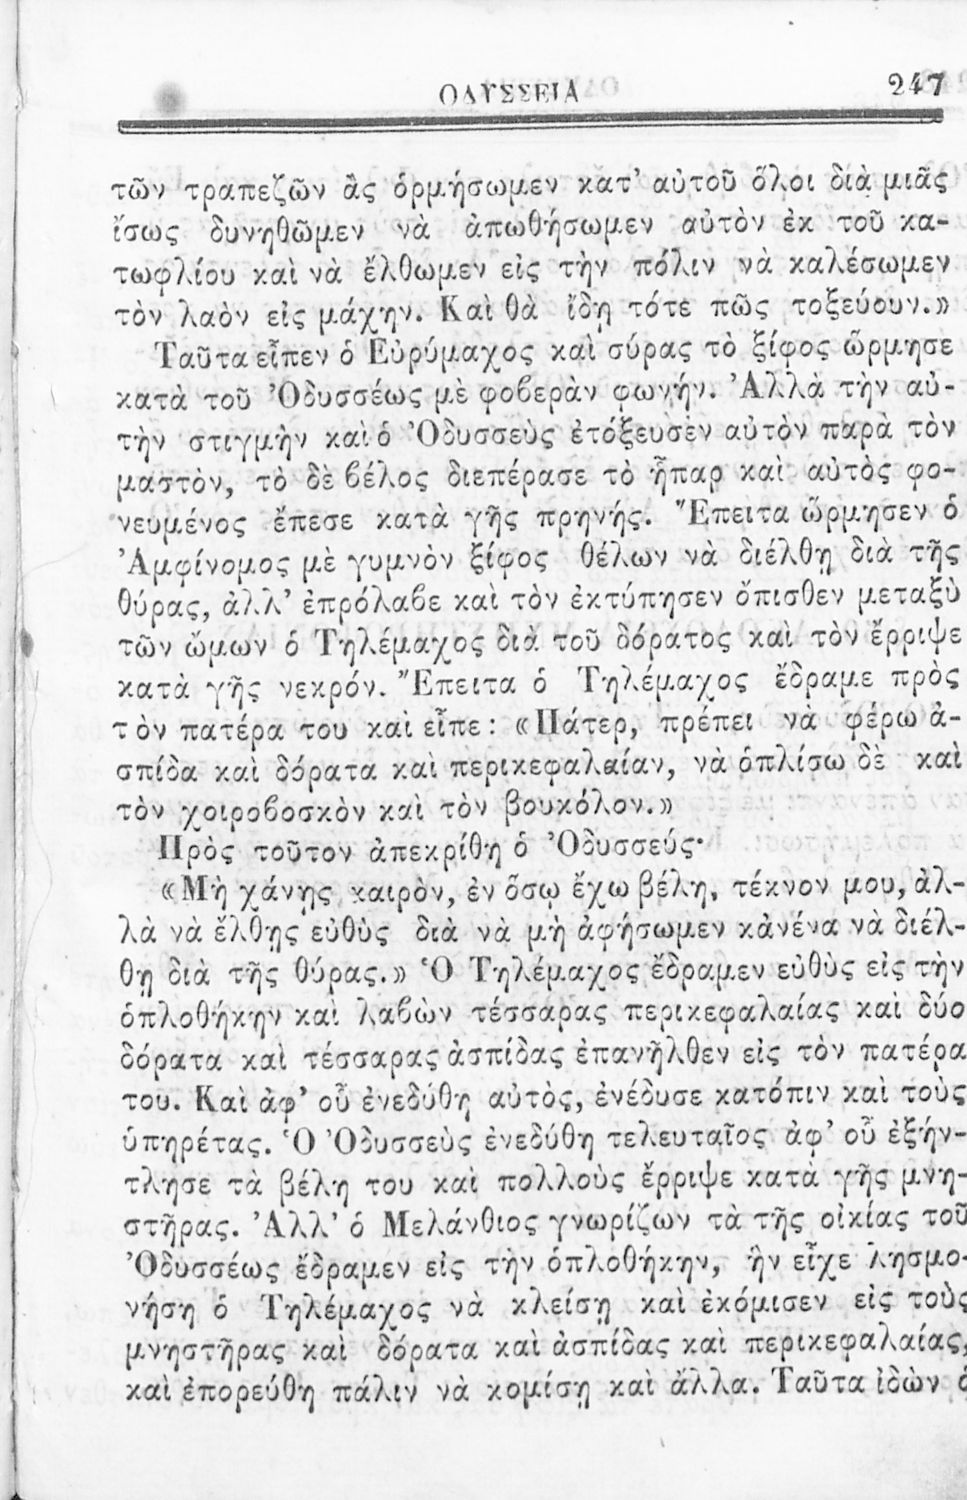 ΟΔΥΣΣΕΙΑ 247
τῶν τραπεζῶν ἂς ὁρμήσωμεν κατ’ αὐτοῦ ὅλοι διὰ μιᾶς
ἴσως δυνηθῶμεν νὰ ἀπωθήσωμεν αὐτὸν ἐκ τοῦ κα-
τωφλίου καὶ νὰ ἔλθωμεν εἰς τὴν πόλιν νὰ καλέσωμεν
τὸν λαὸν εἰς μάχην. Καὶ θὰ ἴδῃ τότε πῶς τοξεύουν.»
Ταῦτα εἶπεν ὁ Εὐρύμαχος καὶ σύρας τὸ ξίφος ὥρμησε
κατὰ τοῦ Ὀδυσσέως μὲ φοβερὰν φωνήν. Ἀλλὰ τὴν αὐ-
τὴν στιγμὴν καὶ ὁ Ὀδυσσεὺς ἐτόξευσεν αὐτὸν παρὰ τὸν
μαστὸν, τὸ δὲ βέλος διεπέρασε τὸ ἧπαρ καὶ αὐτὸς φο-
νευμένος ἔπεσε κατὰ γῆς πρηνής. Ἔπειτα ὥρμησεν ὁ
Ἀμφίνομος μὲ γυμνὸν ξίφος θέλων νὰ διέλθῃ διὰ τῆς
θύρας, ἀλλ’ ἐπρόλαβε καὶ τὸν ἐκτύπησεν ὄπισθεν μεταξὺ
τῶν ὤμων ὁ Τηλέμαχος διὰ τοῦ δόρατος καὶ τὸν ἔρριψε
κατὰ γῆς νεκρόν. Ἔπειτα ὁ Τηλέμαχος ἔδραμε πρὸς
τὸν πατέρα του καὶ εἶπε: «Πάτερ, πρέπει νὰ φέρω ἀ-
σπίδα καὶ δόρατα καὶ περικεφαλαίαν, νὰ ὁπλίσω δὲ καὶ
τὸν χοιροβοσκὸν καὶ τὸν βουκόλον.»
Πρὸς τοῦτον ἀπεκρίθη ὁ Ὀδυσσεύς·
«Μὴ χάνῃς καιρὸν, ἐν ὅσῳ ἔχω βέλη, τέκνον μου, ἀλ-
λὰ νὰ ἔλθῃς εὐθὺς διὰ νὰ μὴ ἀφήσωμεν κἀνένα νὰ διέλ-
θῃ διὰ τῆς θύρας.» Ὁ Τηλέμαχος ἔδραμεν εὐθὺς εἰς τὴν
ὁπλοθήκην καὶ λαβὼν τέσσαρας περικεφαλαίας καὶ δύο
δόρατα καὶ τέσσαρας ἀσπίδας ἐπανῆλθεν εἰς τὸν πατέρα
του. Καὶ ἀφ’ οὗ ἐνεδύθη αὐτὸς, ἐνέδυσε κατόπιν καὶ τοὺς
ὑπηρέτας. Ὁ Ὀδυσσεὺς ἐνεδύθη τελευταῖος ἀφ’ οὗ ἐξήν-
τλησε τὰ βέλη του καὶ πολλοὺς ἔρριψε κατὰ γῆς μνη-
στῆρας. Ἀλλ’ ὁ Μελάνθιος γνωρίζων τὰ τῆς οἰκίας τοῦ
Ὀδυσσέως ἔδραμεν εἰς τὴν ὁπλοθήκην, ἣν εἶχε λησμο-
νήσῃ ὁ Τηλέμαχος νὰ κλείσῃ καὶ ἐκόμισεν εἰς τοὺς
μνηστῆρας καὶ δόρατα καὶ ἀσπίδας καὶ περικεφαλαίας,
καὶ ἐπορεύθη πάλιν νὰ κομίσῃ καὶ ἄλλα. Ταῦτα ἰδὼν ὁ